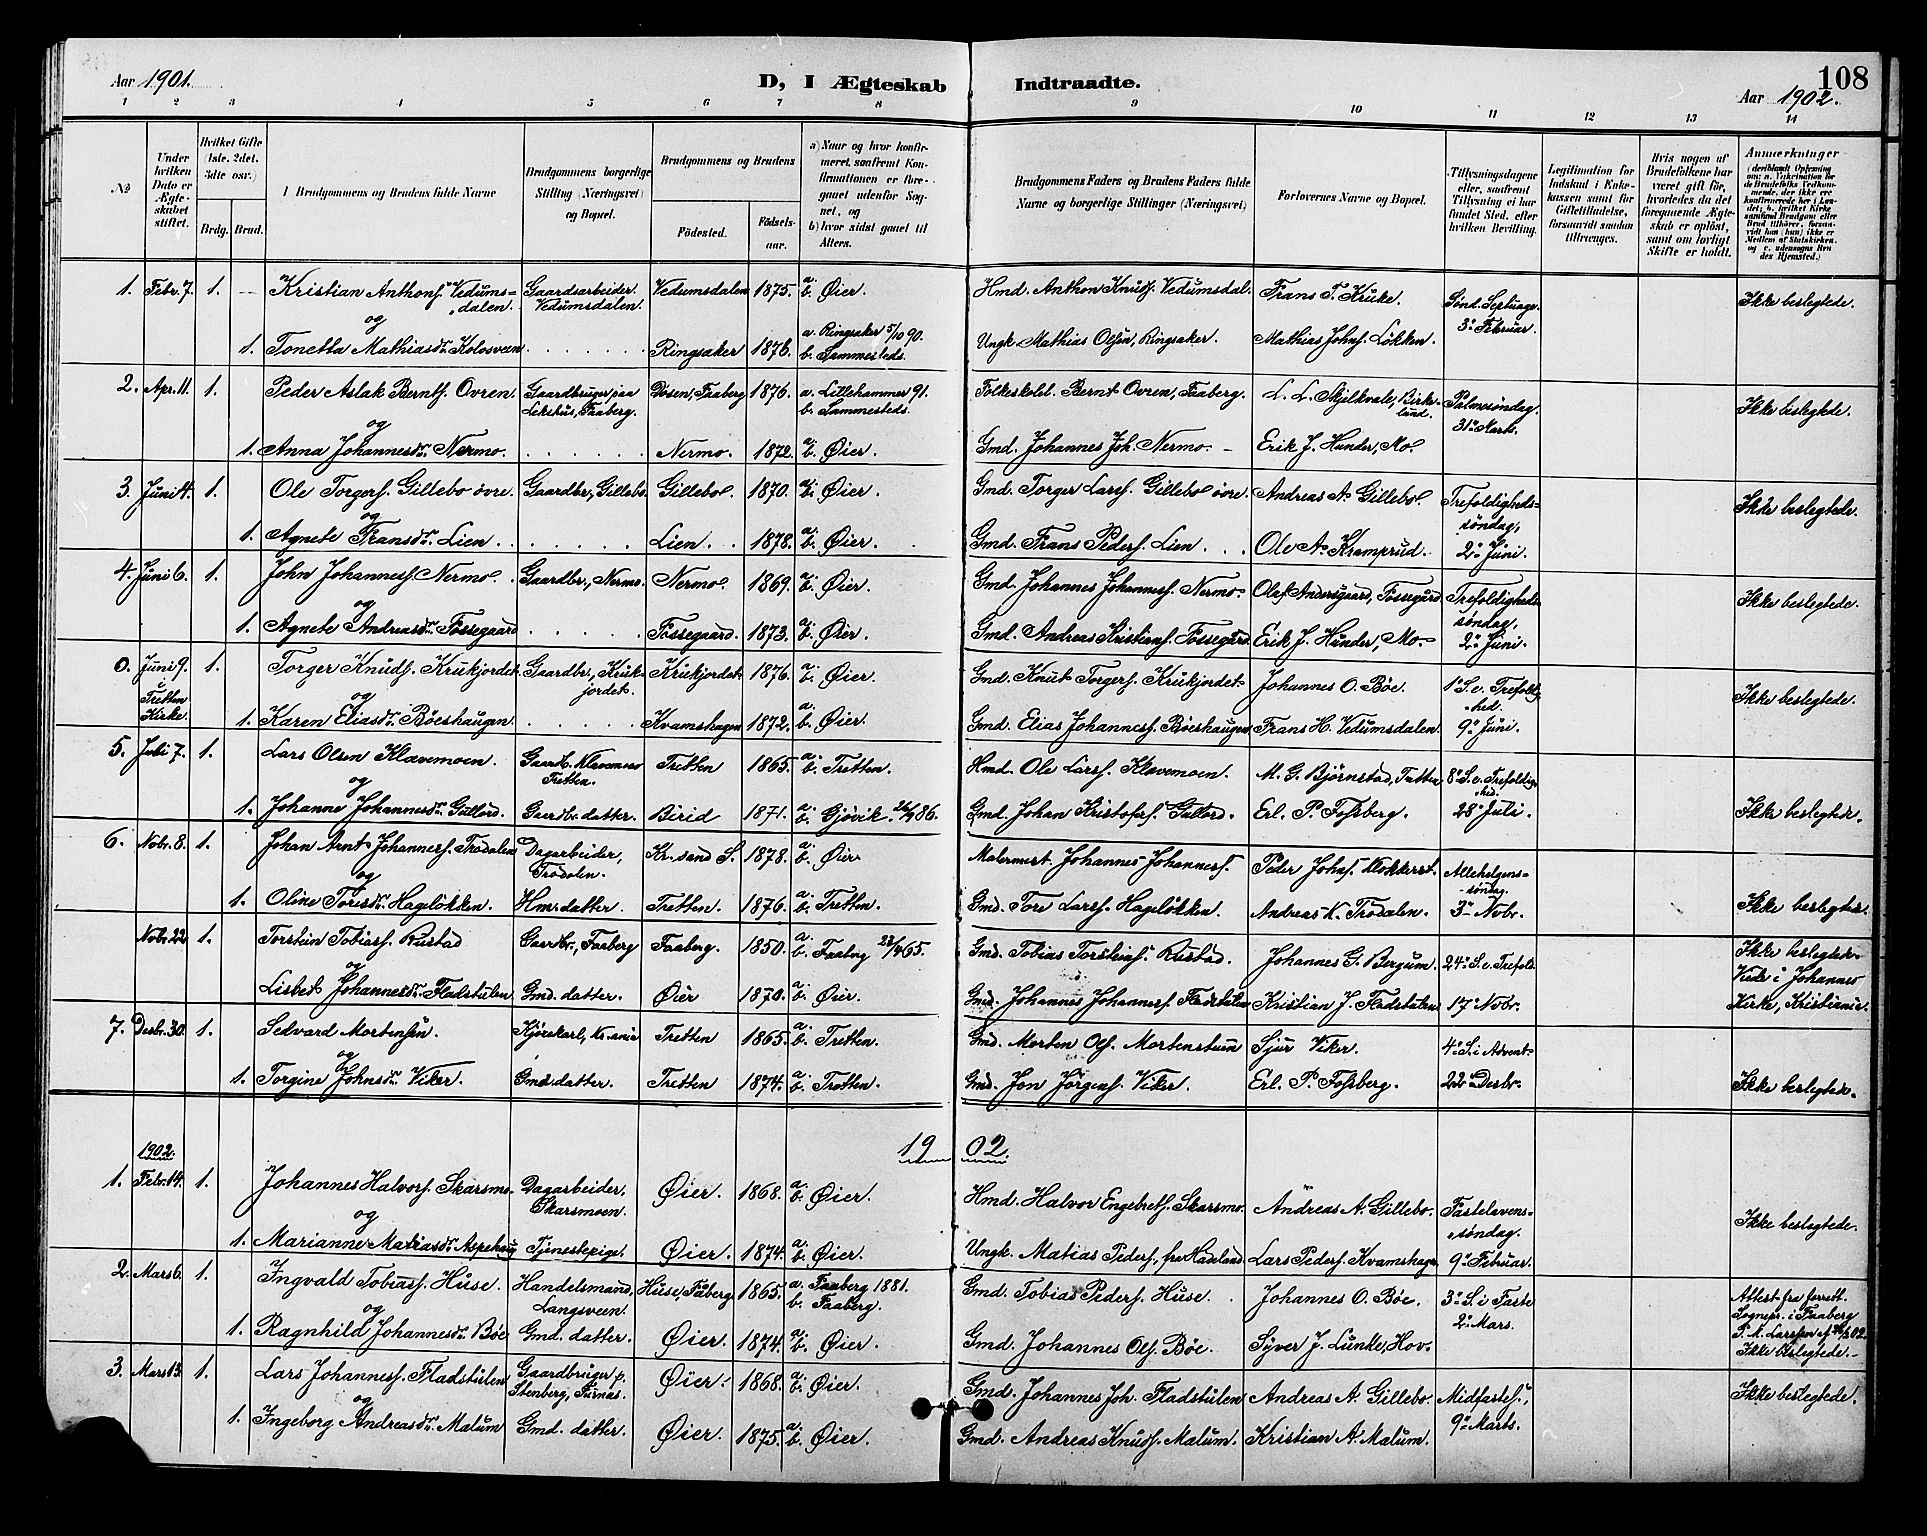 Aar 1901.
D, I Ægteskab Indtraadte.
108
Aar 1902.
1 2 3 4 5 6 7 8 9 10 11 12 13 14
No
Under hvilken Dato er Ægteskabet stiftet.
Hvilket Gifte (1ste, 2det, 3dte osv.)
Brdg. Brud.
Brudgommens og Brudens fulde Navne
Brudgommens borgerlige Stilling (Næringsvei) og Bopæl.
Brudgommens og Brudens
Fødested. Fødselsaar.
a) Naar og hvor konfirmeret, saafremt Konfirmationen er foregaaet udenfor Sognet, og
b) hvor sidst gaaet til Alters.
Brudgommens Faders og Brudens Faders fulde Navne og borgerlige Stillinger (Næringsvei)
Forlovernes Navne og Bopæl.
Tillysningsdagene eller, saafremt Tillysning ei har fundet Sted, efter hvilken Bevilling.
Legitimation for Indskud i Enkekassen samt for Giftetilladelse, forsaavidt saadan tiltrænges.
Hvis nogen af Brudefolkene har været gift før, hvorledes da det foregaaende Ægteskab er opløst, samt om lovligt Skifte er holdt.
Anmærkninger
1. Febr. 7. 1. — Kristian Anthons. Vedumsdalen. Gaardsarbeider Vedumsdalen. Vedumsdalen 1875. a. b. Øier. Hmd. Anthon Knuds. Vedumsdal. Frans P. Kruke. Sønd. Septuag. 3. Februar. Ikke beslegtede.
og
1. Tonetta Mathiasdr. Kolosveen Ringsaker 1876. a. Ringsaker 5/10 90. b. Sammesteds. Ungk. Mathias Olsen, Ringsaker. Mathias Johns. Løkken.
2. Apr. 11. 1. Peder Aslak Bernts. Ovren. Gaardbruger paa Lekshus, Faaberg. Dosen, Faaberg 1876. a. Lillehammer 91. b. Sammesteds. Folkeskolel. Bernt Ovren, Faaberg. L. L. Skjelkvale, Birkeland. Palmesøndag. 31. Marts. Ikke beslegtede.
og
1. Anna Johannesdr. Nermo. Nermo. 1872. a. b. Øier. Gmd. Johannes Joh. Nermo. Erik J. Hunder, Mo.
3. Juni 4. 1. Ole Torgers. Gillebo øvre. Gaardbr., Gillebo. Gillebo. 1870. a. b. Øier. Gmd. Torger Lars. Gillebo øvre. Andreas A. Gillebo. Trefoldighedssøndag, 2. Juni. Ikke beslegtede.
og
1. Agnete Fransdr. Lien. Lien. 1878. a. b. Øier. Gmd. Frans Peders. Lien. Ole A. Kramprud.
4. Juni 6. 1. John Johanness. Nermo. Gaardbr., Nermo. Nermo. 1869. a. b. Øier. Gmd. Johannes Johanness. Nermo. Olaf Andersgaard, Fossegård Trefoldighedssøndag, 2. Juni. Ikke beslegtede.
og
1. Agnete Andreasdr. Fossegaard Fossegaard. 1873. a. b. Øier. Gmd. Andreas Kristians. Fossegård. Erik J. Hunder, Mo.
0. Juni 9. i Tretten Kirke 1. Torger Knuds. Krukjordet. Gaardbr., Krukjordet. Krukjordet. 1876. a. b. Øier. Gmd. Knut Torgers. Krukjordet. Johannes O. Bøe. 1. S. e. Trefoldighed. 9. Juni. Ikke beslegtede.
og
1. Karen Eliasdr. Bøeshaugen Kvamshagen 1872. a. b. Øier. Gmd. Elias Johanness. Bøeshaugen Frans H. Vedumsdalen.
5. Juli 7. 1. Lars Olsen Klævemoen. Gaardb. Klævemoen Tretten. Tretten 1865. a. b. Tretten. Hmd. Ole Larss. Klævemoen. M. G. Bjørnstad, 8. S. e. Trefoldighed. 28. Juli.
og
1. Johanne Johannesdr. Gullord. Gaardbr.datter. Birid 1871. a. b. Gjøvik. 86. Gmd. Johan Kristofers. Gullord. Erl. P. Fossberg. Ikke beslegtede.
6. Nobr. 8. 1. Johan Arnt Johanness. Trodalen Dagarbeider, Trodalen. Kr.sand S. 1878. a. b. Øier. Malermest. Johannes Johanness. Peder Johns. Klokkerst. Allehelgenssøndag. 3. Nobr.
og
1. Oline Toresdr. Hageløkken. Hm. datter. Tretten. 1876. a. b. Tretten. Gmd. Tore Larss. Hageløkken. Andreas K. Trodalen. Ikke beslegtede.
Nobr. 22 1. Torstein Tobiass. Rustad Gaardbr., Faaberg Faaberg. 1850. a. b. Faaberg 65. Gmd. Tobias Torsteins. Rustad. Johannes G. Bergum. 24. S. e. Trefold. 17. Nobr. Ikke beslegtede. Viede i Johannes Kirke, Kristiania.
og
Lisbet Johannesdr. Fladstulen Gmd. datter. Øier 1870. a. b. Øier. Gmd. Johannes Johanness. Fladstulen Kristian J. Fladstulen
7. Desbr. 30. 1. Sedvard Mortensen. Kjørekarl, Kr.ania Tretten 1865. a. b. Tretten. Gmd. Morten Ols. Mortenstuen Sjur Viker. 4. S. i Advent 22. Desbr.
og
1. Torgine Johnsdr. Viker. Gmd. datter. Tretten 1874. a. b. Tretten. Gmd. Jon Jørgens. Viker. Erl. P. Fossberg. Ikke beslegtede.
1902.
1902.
1. Febr. 14. 1. Johannes Halvors. Skarsmo. Dagarbeider. Skarsmoen. Øier. 1868. a. b. Øier. Hmd. Halvor Engebrets. Skarsmo. Andreas A. Gillebo. Fastelavenssøndag. 9. Februar. Ikke beslegtede.
og
1. Marianne Matiasdr. Aspehaug Tjenestepige. Øier. 1874. a. b. Øier. Ungk. Matias Peders. fra Hadeland Lars Peders. Kvamshagen
2. Mars 6. 1. Ingvald Tobiass. Huse. Handelsmand, Langsveen. Huse, Fåberg. 1865. a. Faaberg 1881. b. Faaberg. Gmd. Tobias Peders. Huse. Johannes O. Bøe. 3. S. i Faste 2. Mars. Attest fra forrett. Sognepr. i Faaberg P. M. Larssen Ikke beslegtede.
og
1. Ragnhild Johannesdr. Bøe Gmd. datter. Øier. 1874. a. b. Øier. Gmd. Johannes Ols. Bøe. Syver J. Lunke, Hov.
3. Mars 13. 1. Lars Johanness. Fladstulen Gaardbruger p. Stenberg, Furnæs. Øier. 1868. a. b. Øier. Gmd. Johannes Joh. Fladstulen Andreas A. Gillebo. Midfastes., 9. Marts. Ikke beslegtede.
og
1. Ingeborg Andreasdr. Malum Gmd. datter. Øier. 1875. a. b. Øier. Gmd. Andreas Knuds. Malum. Kristian A. Malum.